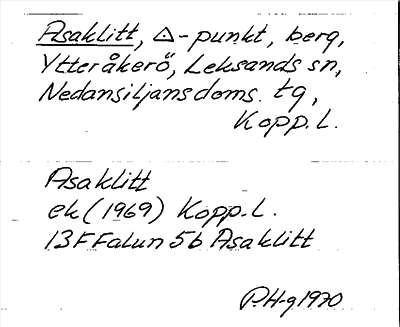 Asaklitt, △-punkt, berg,
Ytteråkerö, Leksands sn,
Nedansiljans doms. tg,
Kopp.l.
Asaklitt
ek (1969) Kopp.l.
13F Falun 5b Asaklitt
P.H-g 1970